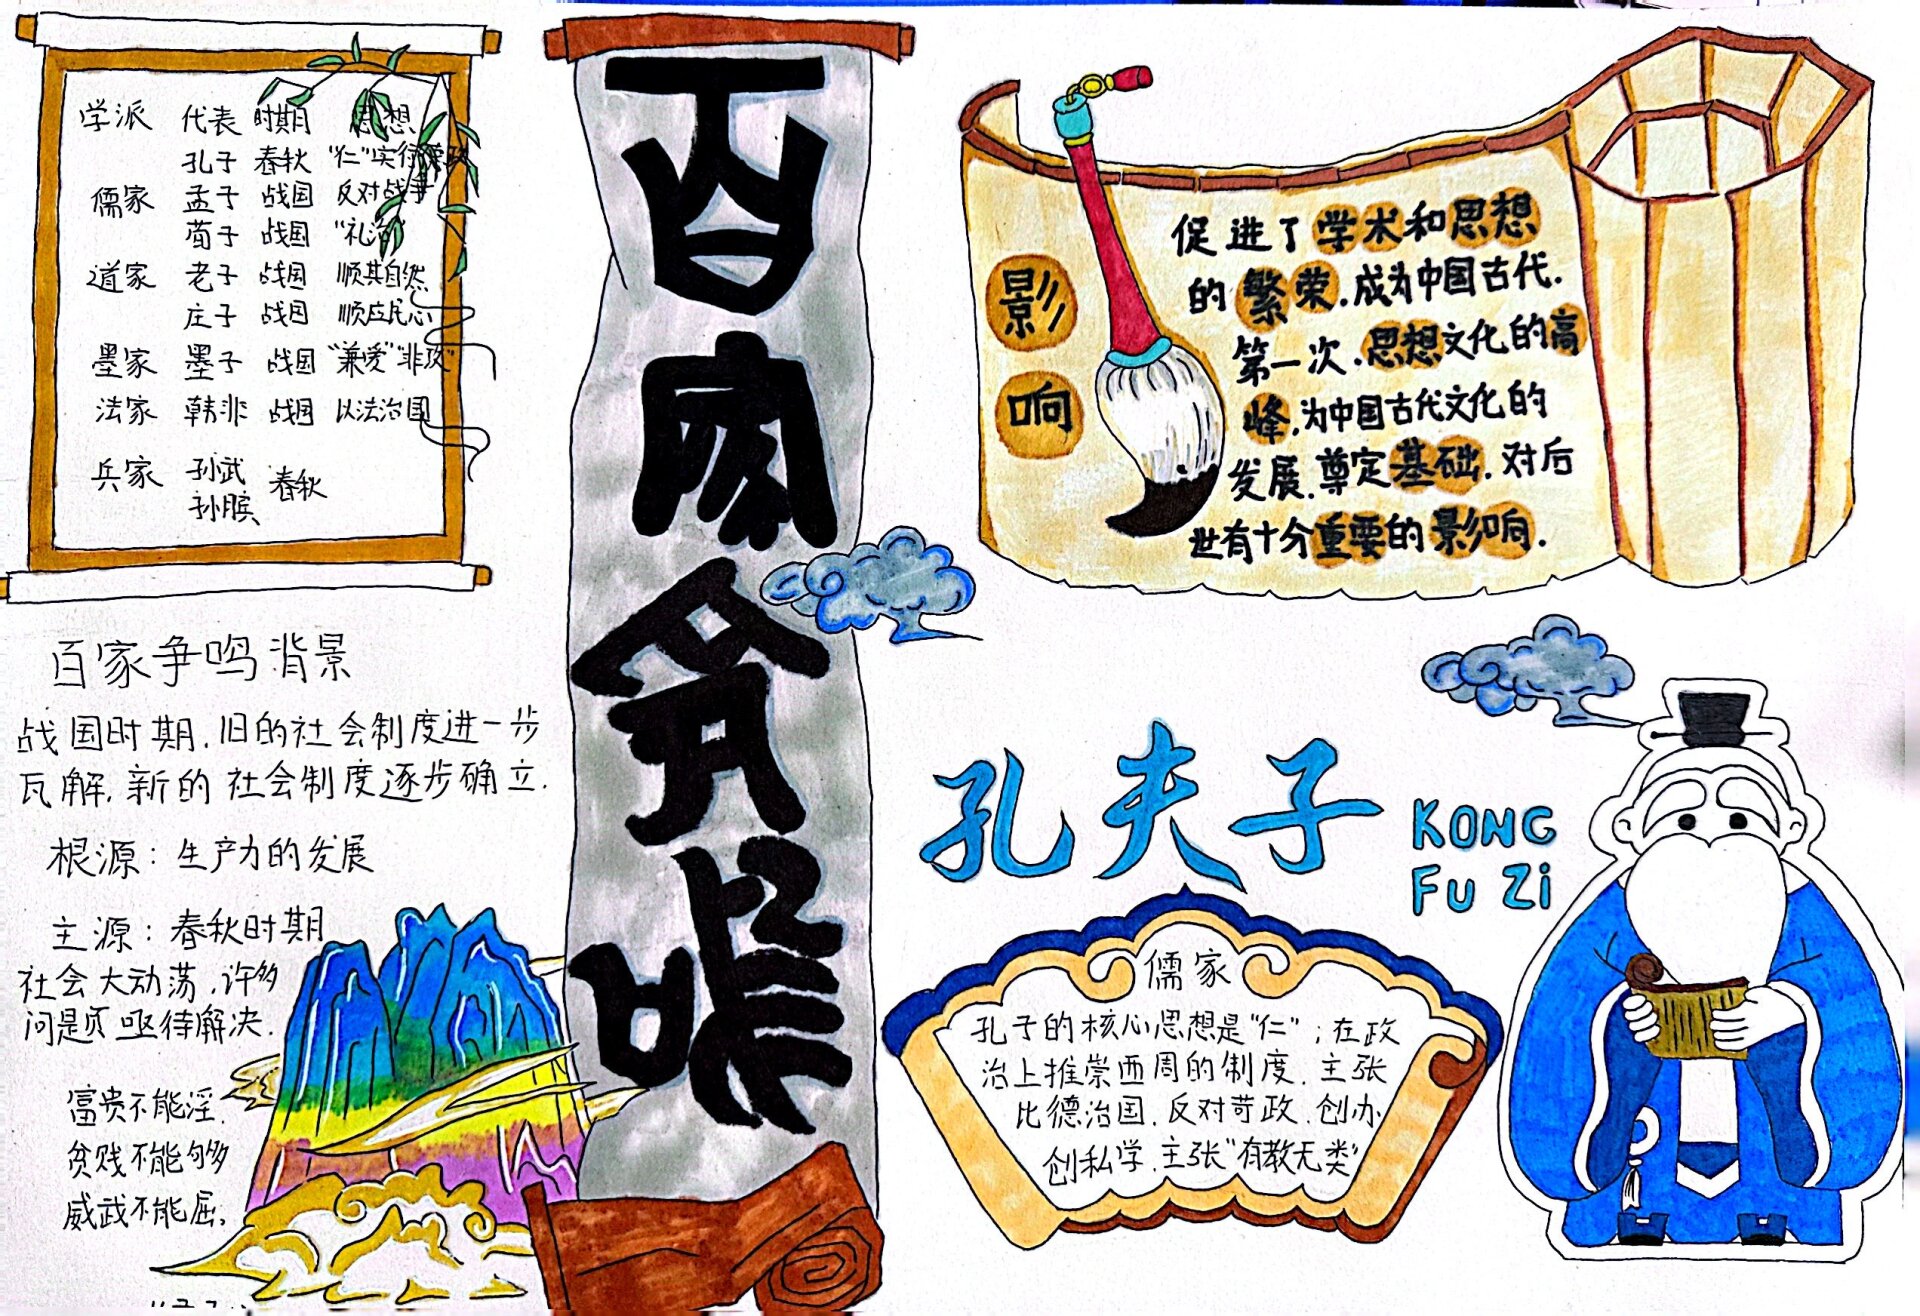 学派 代表 时期 思想
孔子 春秋 "仁"实行德政
儒家 孟子 战国 反对战争
荀子 战国 "礼治"
道家 老子 战国 顺其自然
庄子 战国 顺应民心
墨家 墨子 战国 "兼爱""非攻"
法家 韩非 战国 以法治国
兵家 孙武 春秋
孙膑
百家争鸣背景
战国时期,旧的社会制度进一步
瓦解,新的社会制度逐步确立.
根源:生产力的发展
主源:春秋时期
社会大动荡,许多
问题页亟待解决.
富贵不能淫,
贫贱不能够
威武不能屈。
百家争鸣
影响
促进了学术和思想
的繁荣.成为中国古代.
第一次.思想文化的高
峰,为中国古代文化的
发展.尊定基础.对后
世有十分重要的影响.
孔夫子
KONG
FU Zi
儒家
孔子的核心思想是"仁";在政
治上推崇西周的制度.主张
比德治国.反对苛政.创办
创私学.主张"有教无类"